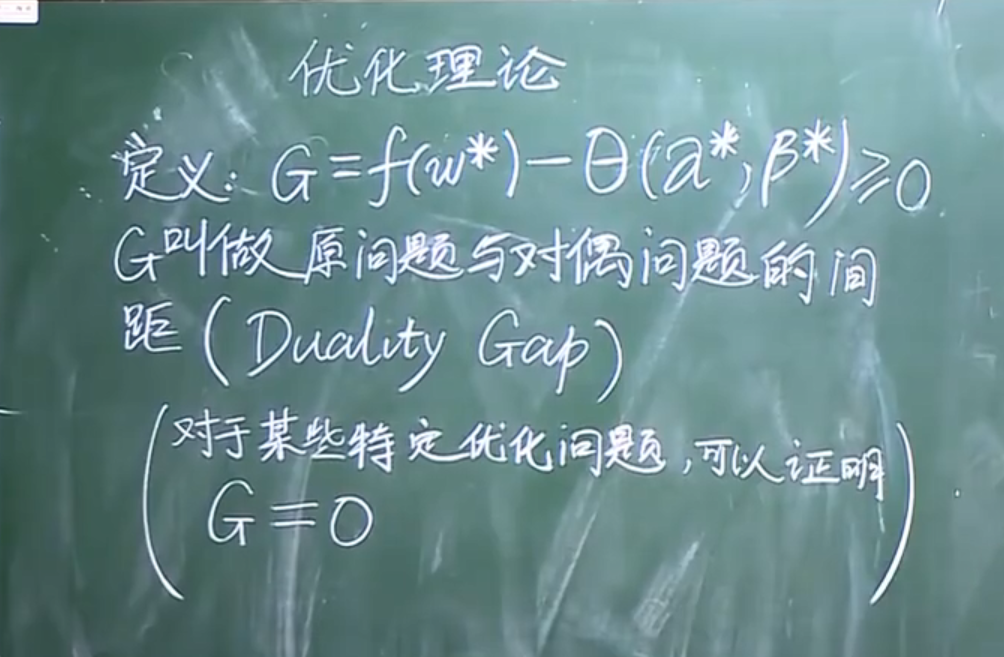 优化理论
定义: G=f(w*)-θ(α*,β*)≥0
G叫做原问题与对偶问题的间
距(Duality Gap)
(对于某些特定优化问题,可以证明
G=0)